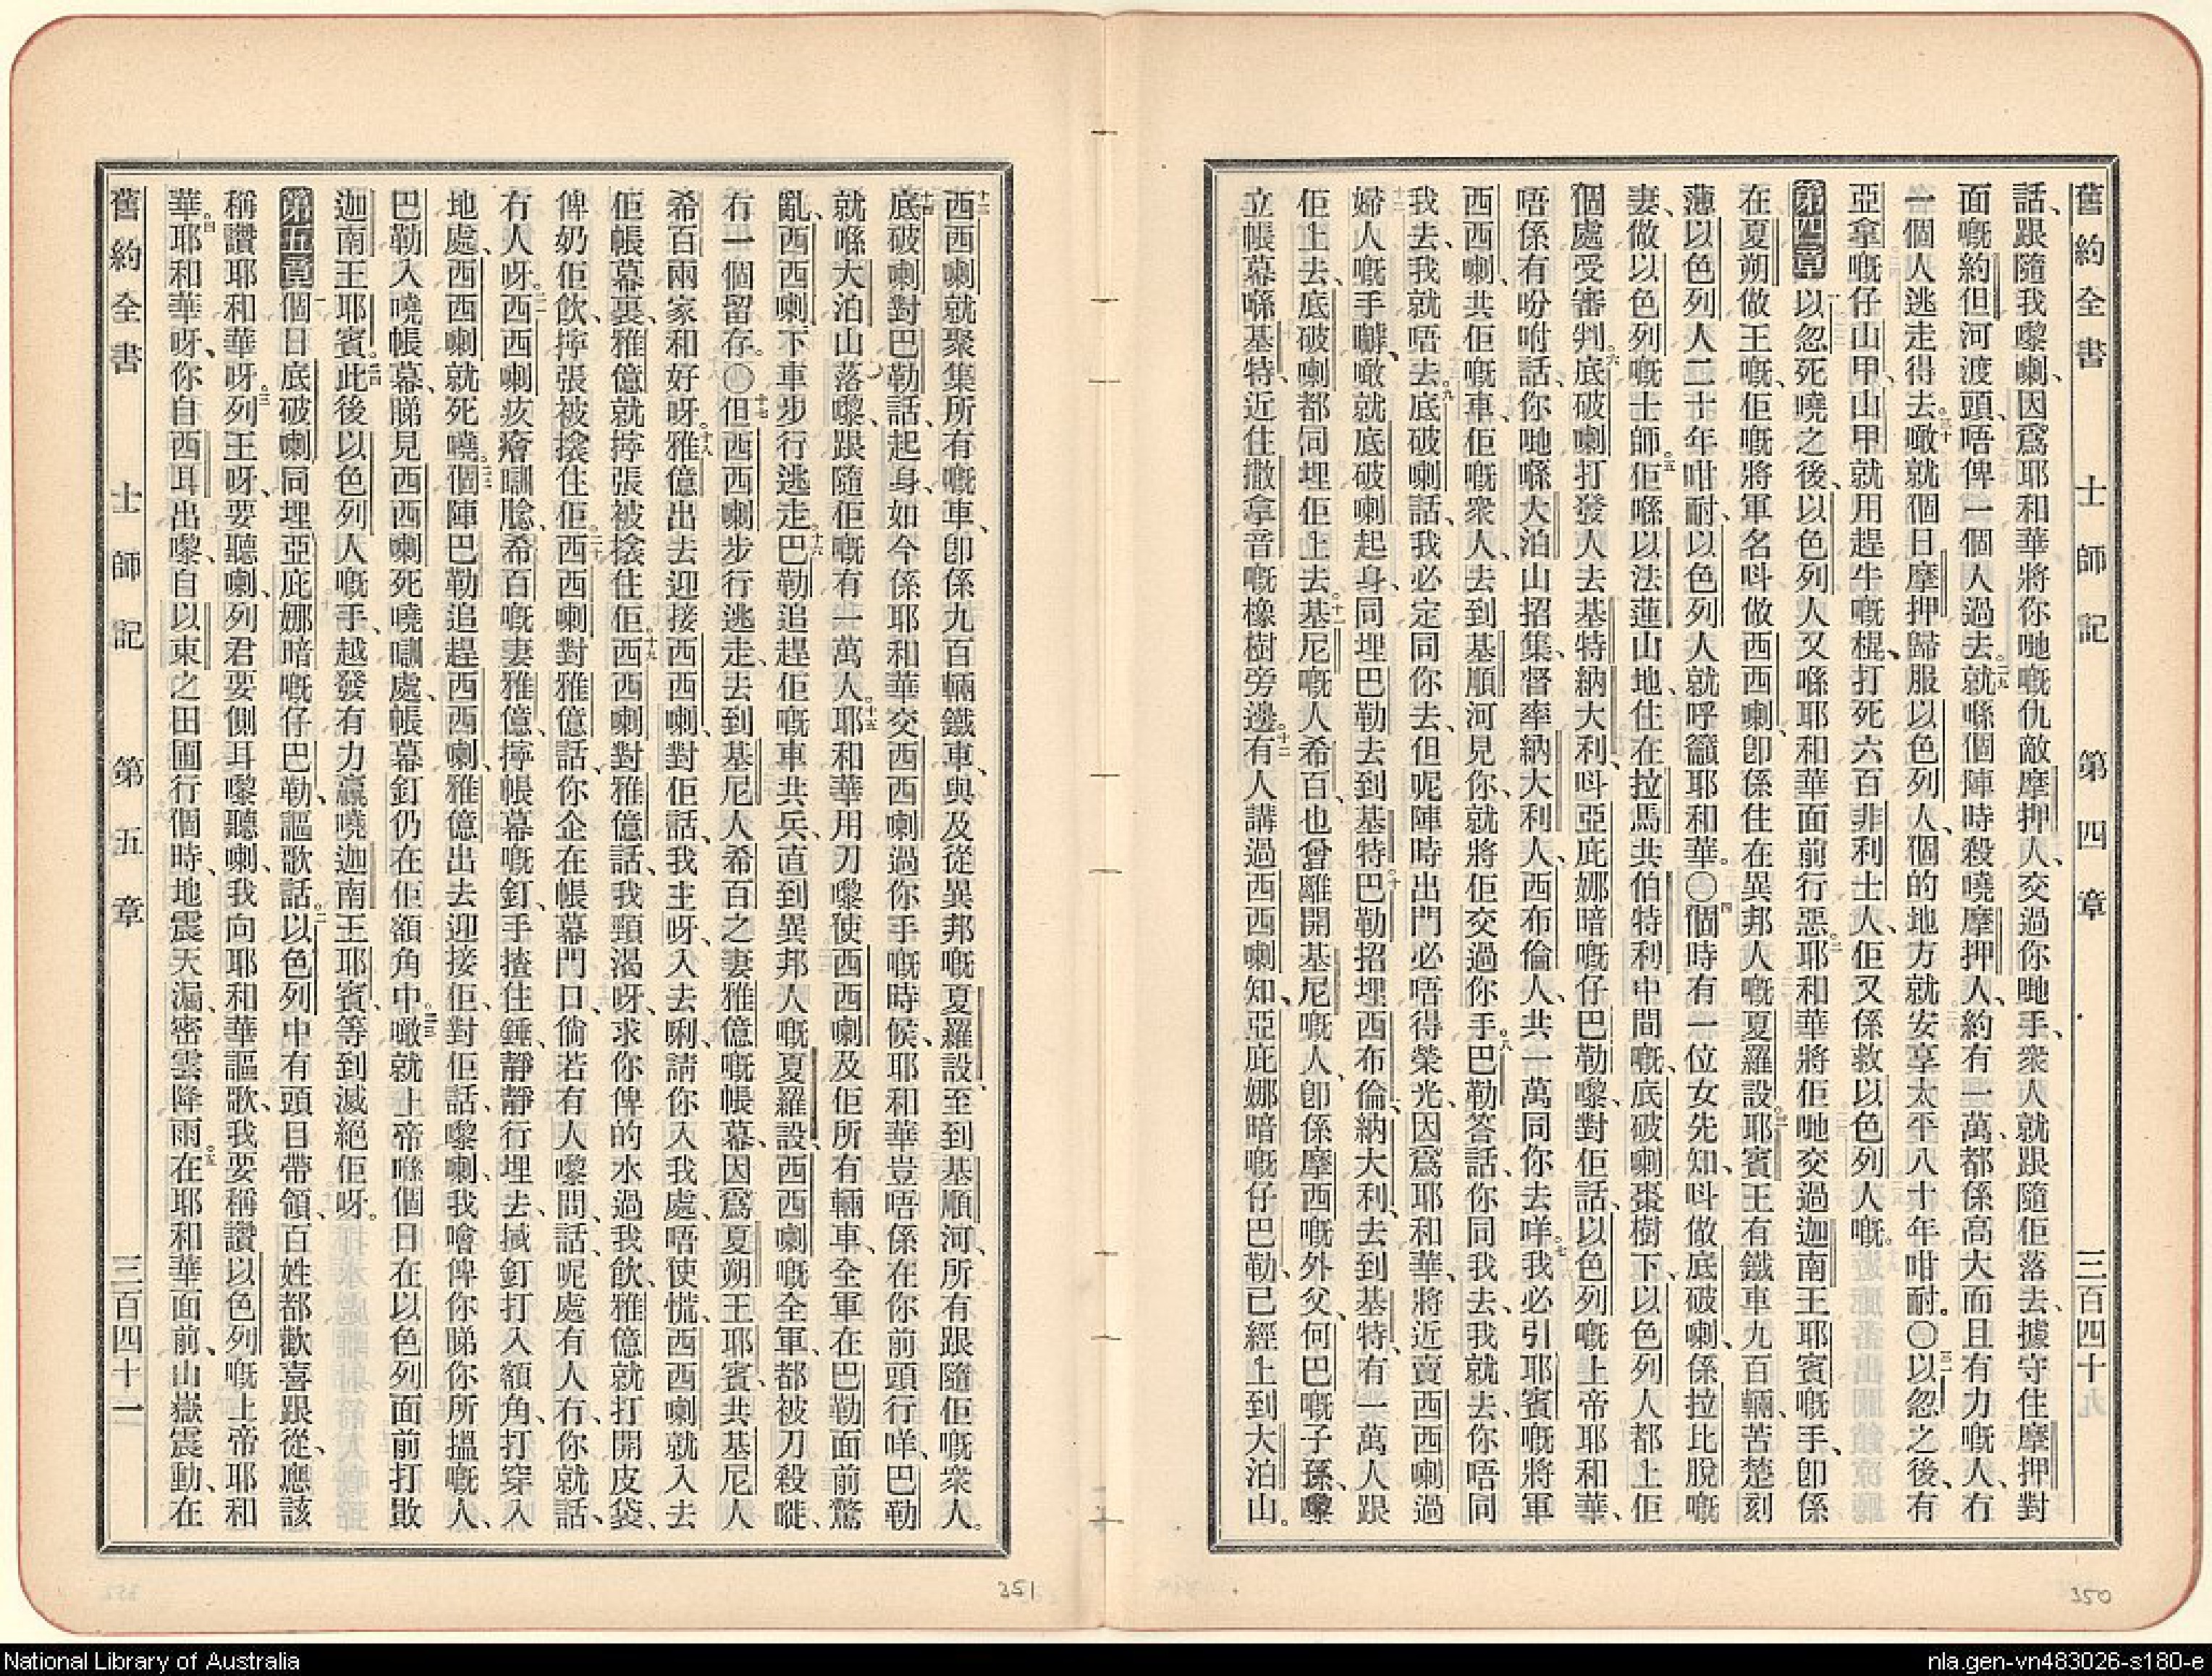 舊約全書 士師記 第四章 三百四十九
話、跟隨我嚟喇、因爲耶和華將你哋嘅仇敵摩押人、交過你哋手、衆人就跟隨佢落去、據守住摩押對
面嘅約但河渡頭、唔俾一個人過去。二九就喺個陣時殺嘵摩押人、約有一萬、都係高大而且有力嘅人、冇
一個人逃走得去。三十噉就個日摩押歸服以色列人、個的地方就安享太平八十年咁耐。〇三一以忽之後、有
亞拿嘅仔山甲、山甲就用趕牛嘅棍、打死六百非利士人、佢又係救以色列人嘅。
第四章 一以忽死嘵之後、以色列人又喺耶和華面前行惡。二耶和華將佢哋交過迦南王耶賓嘅手、卽係
在夏朔做王嘅、佢嘅將軍名呌做西西喇、卽係住在異邦人嘅夏羅設。三耶賓王有鐵車九百輛、苦楚刻
薄以色列人二十年咁耐、以色列人就呼籲耶和華。〇四個時有一位女先知、呌做底破喇、係拉比脫嘅
妻、做以色列嘅士師。五佢喺以法蓮山地、住在拉馬共伯特利中間嘅、底破喇棗樹下、以色列人都上佢
個處受審判。六底破喇打發人去基特納大利、呌亞庇娜暗嘅仔巴勒嚟、對佢話、以色列嘅上帝耶和華、
唔係有吩咐話、你哋喺大泊山招集、督率納大利人、西布倫人、共一萬同你去咩。七我必引耶賓嘅將軍
西西喇、共佢嘅車、佢嘅衆人、去到基順河見你、就將佢交過你手。八巴勒答話、你同我去、我就去、你唔同
我去、我就唔去。九底破喇話、我必定同你去、但呢陣時出門必唔得榮光、因爲耶和華、將近賣西西喇過
婦人嘅手嚹、噉就底破喇起身、同埋巴勒去到基特。十巴勒招埋西布倫、納大利、去到基特、有一萬人跟
佢上去、底破喇都同埋佢上去。十一基尼嘅人希百、也曾離開基尼嘅人、卽係摩西嘅外父、何巴嘅子孫、嚟
立帳幕喺基特、近住撒拿音嘅橡樹旁邊。十二有人講過西西喇知、亞庇娜暗嘅仔巴勒、已經上到大泊山。
350
十三西西喇就聚集所有嘅車、卽係九百輛鐵車、與及從異邦嘅夏羅設、至到基順河、所有跟隨佢嘅衆人。
十四底破喇對巴勒話、起身、如今係耶和華交西西喇過你手嘅時候、耶和華豈唔係在你前頭行咩、巴勒
就喺大泊山落嚟、跟隨佢嘅有一萬人。十五耶和華用刀嚟使西西喇及佢所有輛車、全軍在巴勒面前驚
亂、西西喇下車步行逃走。十六巴勒追趕佢嘅車共兵、直到異邦人嘅夏羅設、西西喇嘅全軍、都被刀殺嘥、
冇一個留存。〇十七但西西喇步行逃走、去到基尼人希百之妻雅億嘅帳幕、因爲夏朔王耶賓、共基尼人
希百兩家和好呀。十八雅億出去迎接西西喇、對佢話、我主呀、入去唎、請你入我處、唔使慌、西西喇就入去
佢帳幕裏、雅億就擰張被搇住佢。十九西西喇對雅億話、我頸渴呀、求你俾的水過我飮、雅億就打開皮袋、
俾奶佢飮、擰張被搇住佢。二十西西喇對雅億話、你企在帳幕門口、倘若有人嚟問、話、呢處有人冇、你就話、
冇人呀。二一西西喇疚瘡瞓腍、希百嘅妻雅億、擰帳幕嘅釘、手揸住錘、靜靜行埋去、㨋釘打入額角、打穿入
地處、西西喇就死嘵。二二個陣巴勒追趕西西喇、雅億出去迎接佢、對佢話、嚟喇、我噲俾你睇你所搵嘅人、
巴勒入嘵帳幕、睇見西西喇死嘵瞓處、帳幕釘仍在佢額角中。二三噉就上帝喺個日在以色列面前打敗
迦南王耶賓。二四此後以色列人嘅手、越發有力贏嘵迦南王耶賓、等到滅絕佢呀。
第五章 一個日底破喇同埋亞庇娜暗嘅仔巴勒、謳歌話。二以色列中有頭目帶領、百姓都歡喜跟從、應該
稱讚耶和華呀。三列王呀、要聽喇、列君要側耳嚟聽喇、我向耶和華謳歌、我要稱讚以色列嘅上帝耶和
華。四耶和華呀、你自西耳出嚟、自以東之田圃行個時、地震天漏、密雲降雨。五在耶和華面前、山嶽震動、在
舊約全書 士師記 第五章 三百四十一
351
National Library of Australia
nla.gen-vn483026-s180-e